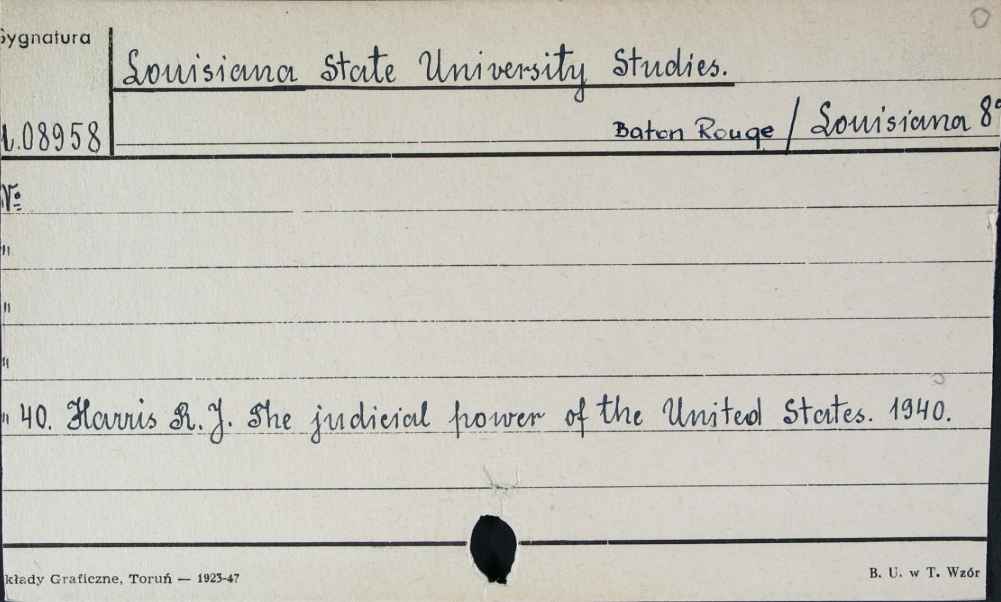 Sygnatura
Louisiana State University Studies.
08958
Baton Rouge / Louisiana 8°
Nº
"
"
"
" 40. Harris R. J. The judicial power of the United States. 1940.
kłady Graficzne, Toruń — 1923-47
B. U. w T. Wzór